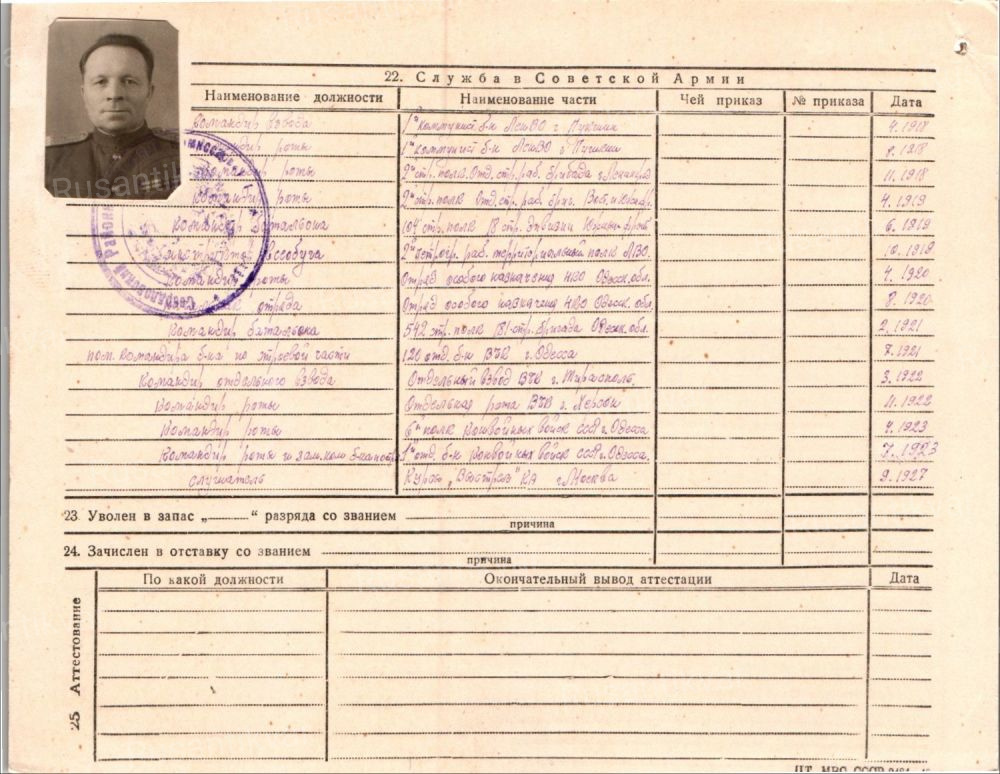 22. Служба в Советской Армии
Наименование должности Наименование части Чей приказ № приказа Дата
Командир взвода 1й коммунист б-н г. Пушкин 4.1918
роты 1й коммунист б-н г. Пушкин 8.1918
Командир роты 2й стр. полк Отд. стр. раб. бригада г. Ленинград 11.1918
Командир роты 2й стр. полк Отд. стр. раб. бриг. 4.1919
Командир батальона 104 стр. полк 18 стр. дивизии 6.1919
Инструктор Всеобуча раб. территориальный полк ЛВО. 10.1919
Командир роты Отряд особого назначения Одесск. обл. 4.1920
отряда Отряд особого назначения Одесск. обл. 8.1920
Командир батальона 542 стр. полк 181 стр. бригада Одесск. обл. 2.1921
пом. командира б-на по строевой части 120 отд. б-н ВЧК г. Одесса 7.1921
Командир отдельного взвода Отдельный взвод ВЧК г. Тирасполь 3.1922
Командир роты Отдельная рота ВЧК г. Херсон 11.1922
Командир роты 6й полк конвойных войск СССР г. Одесса 4.1923
Командир роты и зам. ком. б-на 1й отд. б-н конвойных войск СССР г. Одесса. 7.1923
слушатель Курсы „Выстрел" КА г. Москва 9.1927
23. Уволен в запас „ “ разряда со званием
причина
24. Зачислен в отставку со званием
причина
25 Аттестование
По какой должности Окончательный вывод аттестации Дата
RusAntik